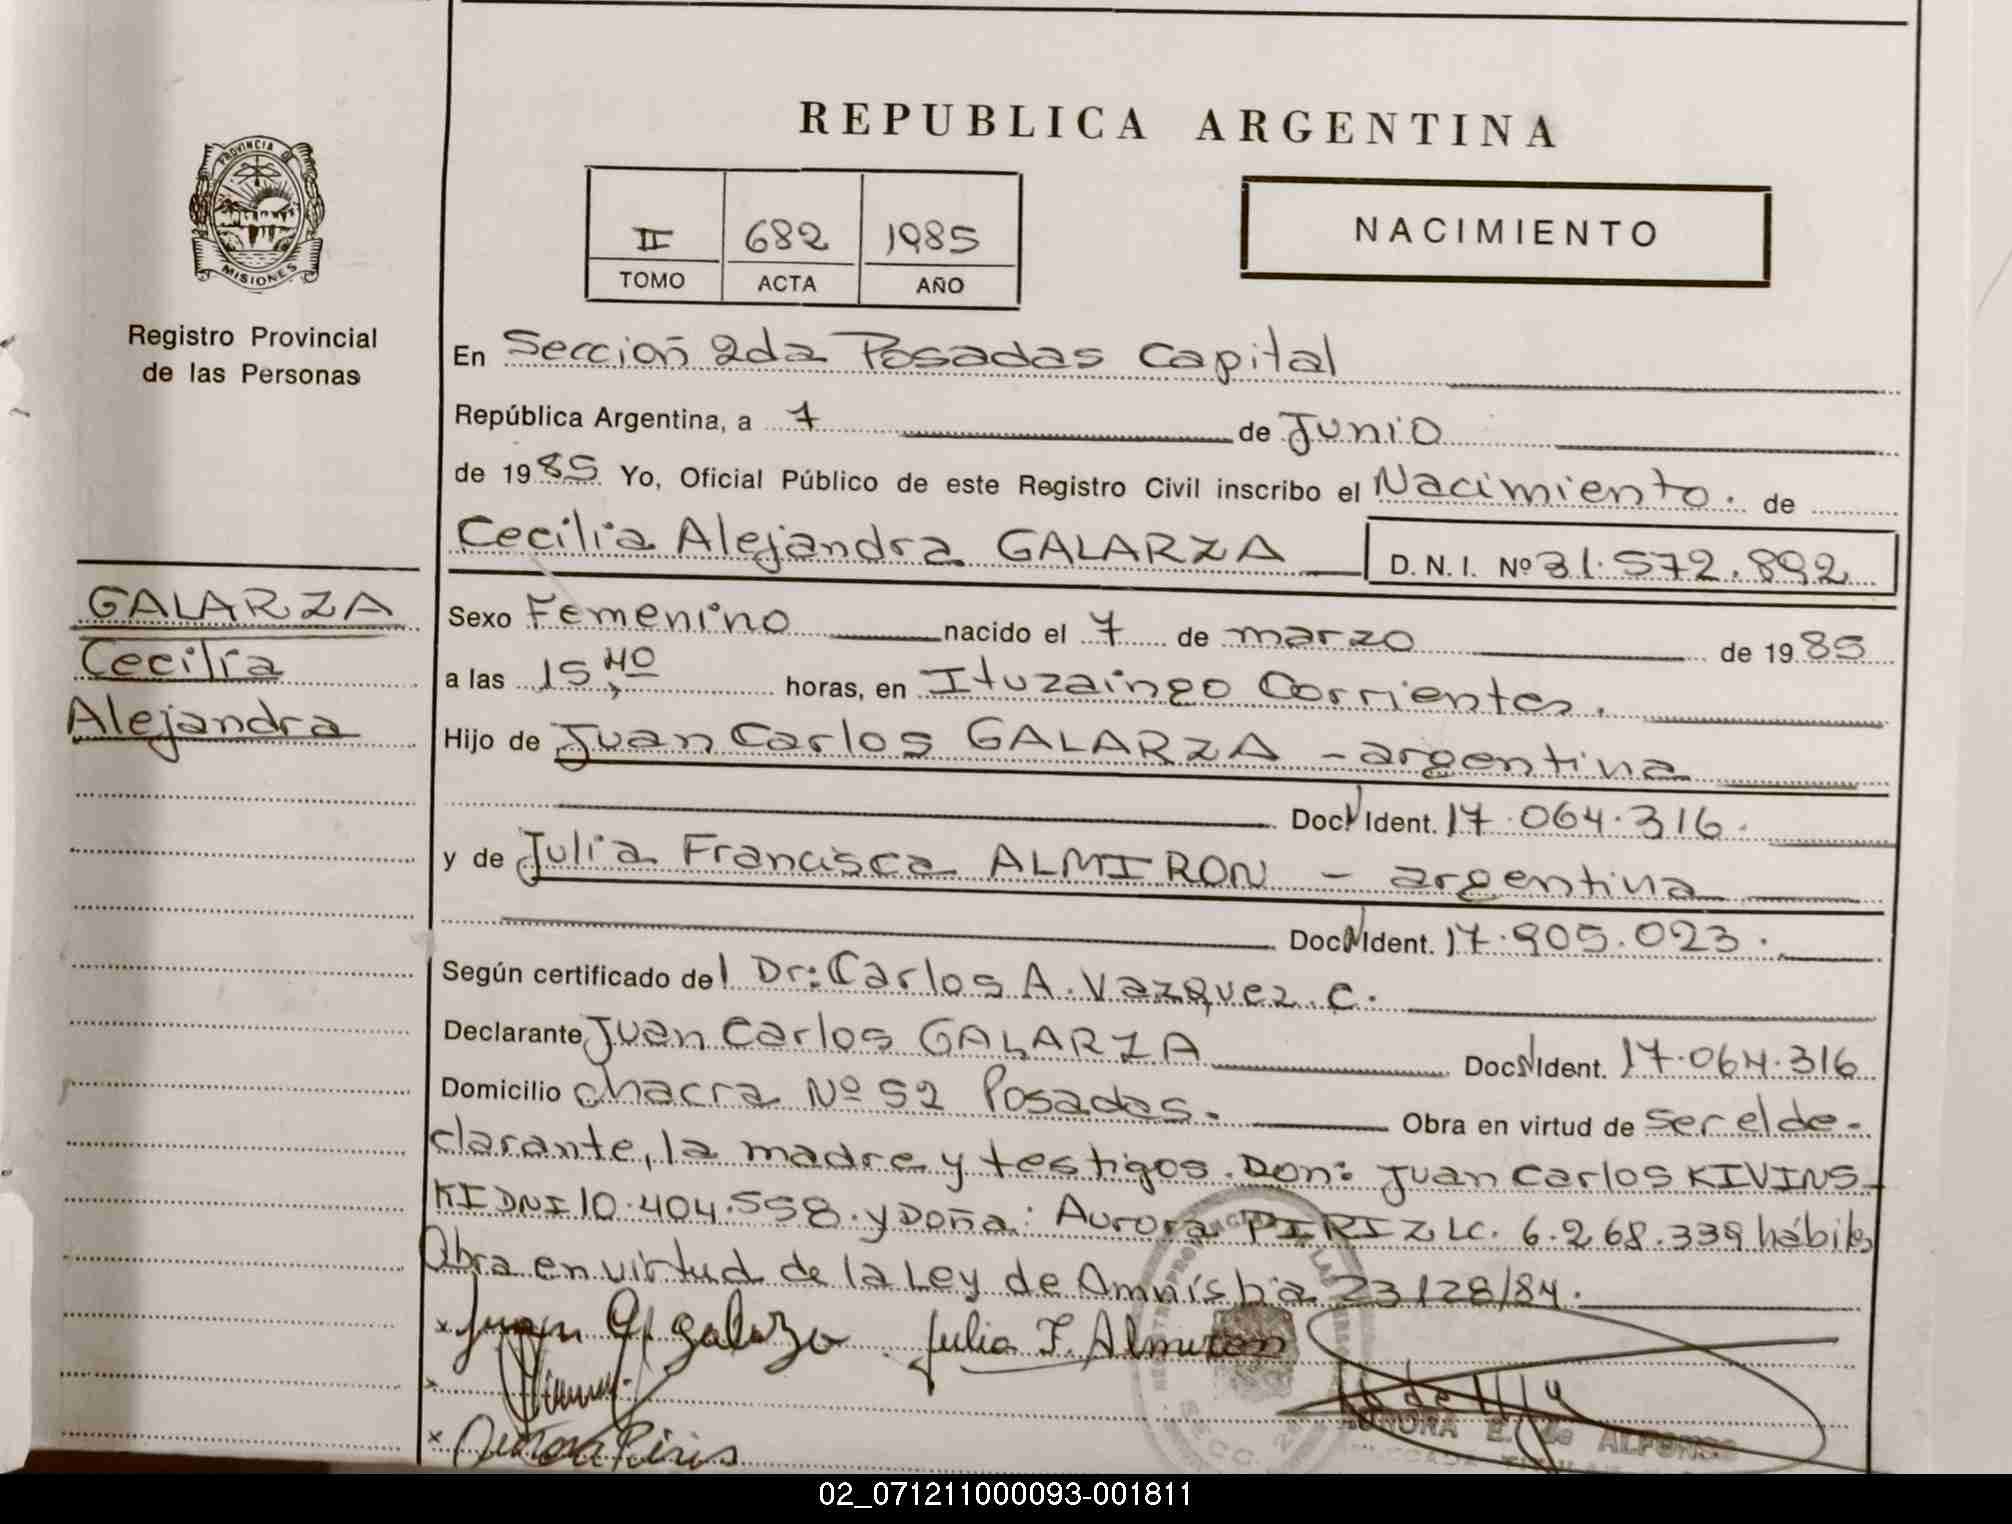 REPUBLICA ARGENTINA
PROVINCIA DE
MISIONES
Registro Provincial
de las Personas
II 682 1985
TOMO ACTA AÑO
NACIMIENTO
En Sección 2da Posadas Capital
República Argentina, a 7 de Junio
de 1985 Yo, Oficial Público de este Registro Civil inscribo el Nacimiento. de
Cecilia Alejandra GALARZA D. N. I. Nº 31.572.892
GALARZA
Cecilia
Alejandra
Sexo Femenino nacido el 7 de marzo de 1985
a las 15,40 horas, en Ituzaingo Corrientes.
Hijo de Juan Carlos GALARZA - argentina
Doc. Ident. 17.064.316.
y de Julia Francisca ALMIRON - argentina
Doc. Ident. 17.905.023.
Según certificado del Dr: Carlos A. Vazquez. C.
Declarante Juan Carlos GALARZA Doc. Ident. 17.064.316
Domicilio chacra Nº 52 Posadas. Obra en virtud de ser el de-
clarante, la madre y testigos. Don: Juan Carlos KIVINS-
KI DNI 10.404.558. y Doña: Aurora PIRIZ LC. 6.268.339 hábiles
Obra en virtud de la Ley de Amnistia 23128/84.
x Juan C. Galarza Julia F. Almiron
x
x Aurora Piris
E. de ALFONSO
02_071211000093-001811